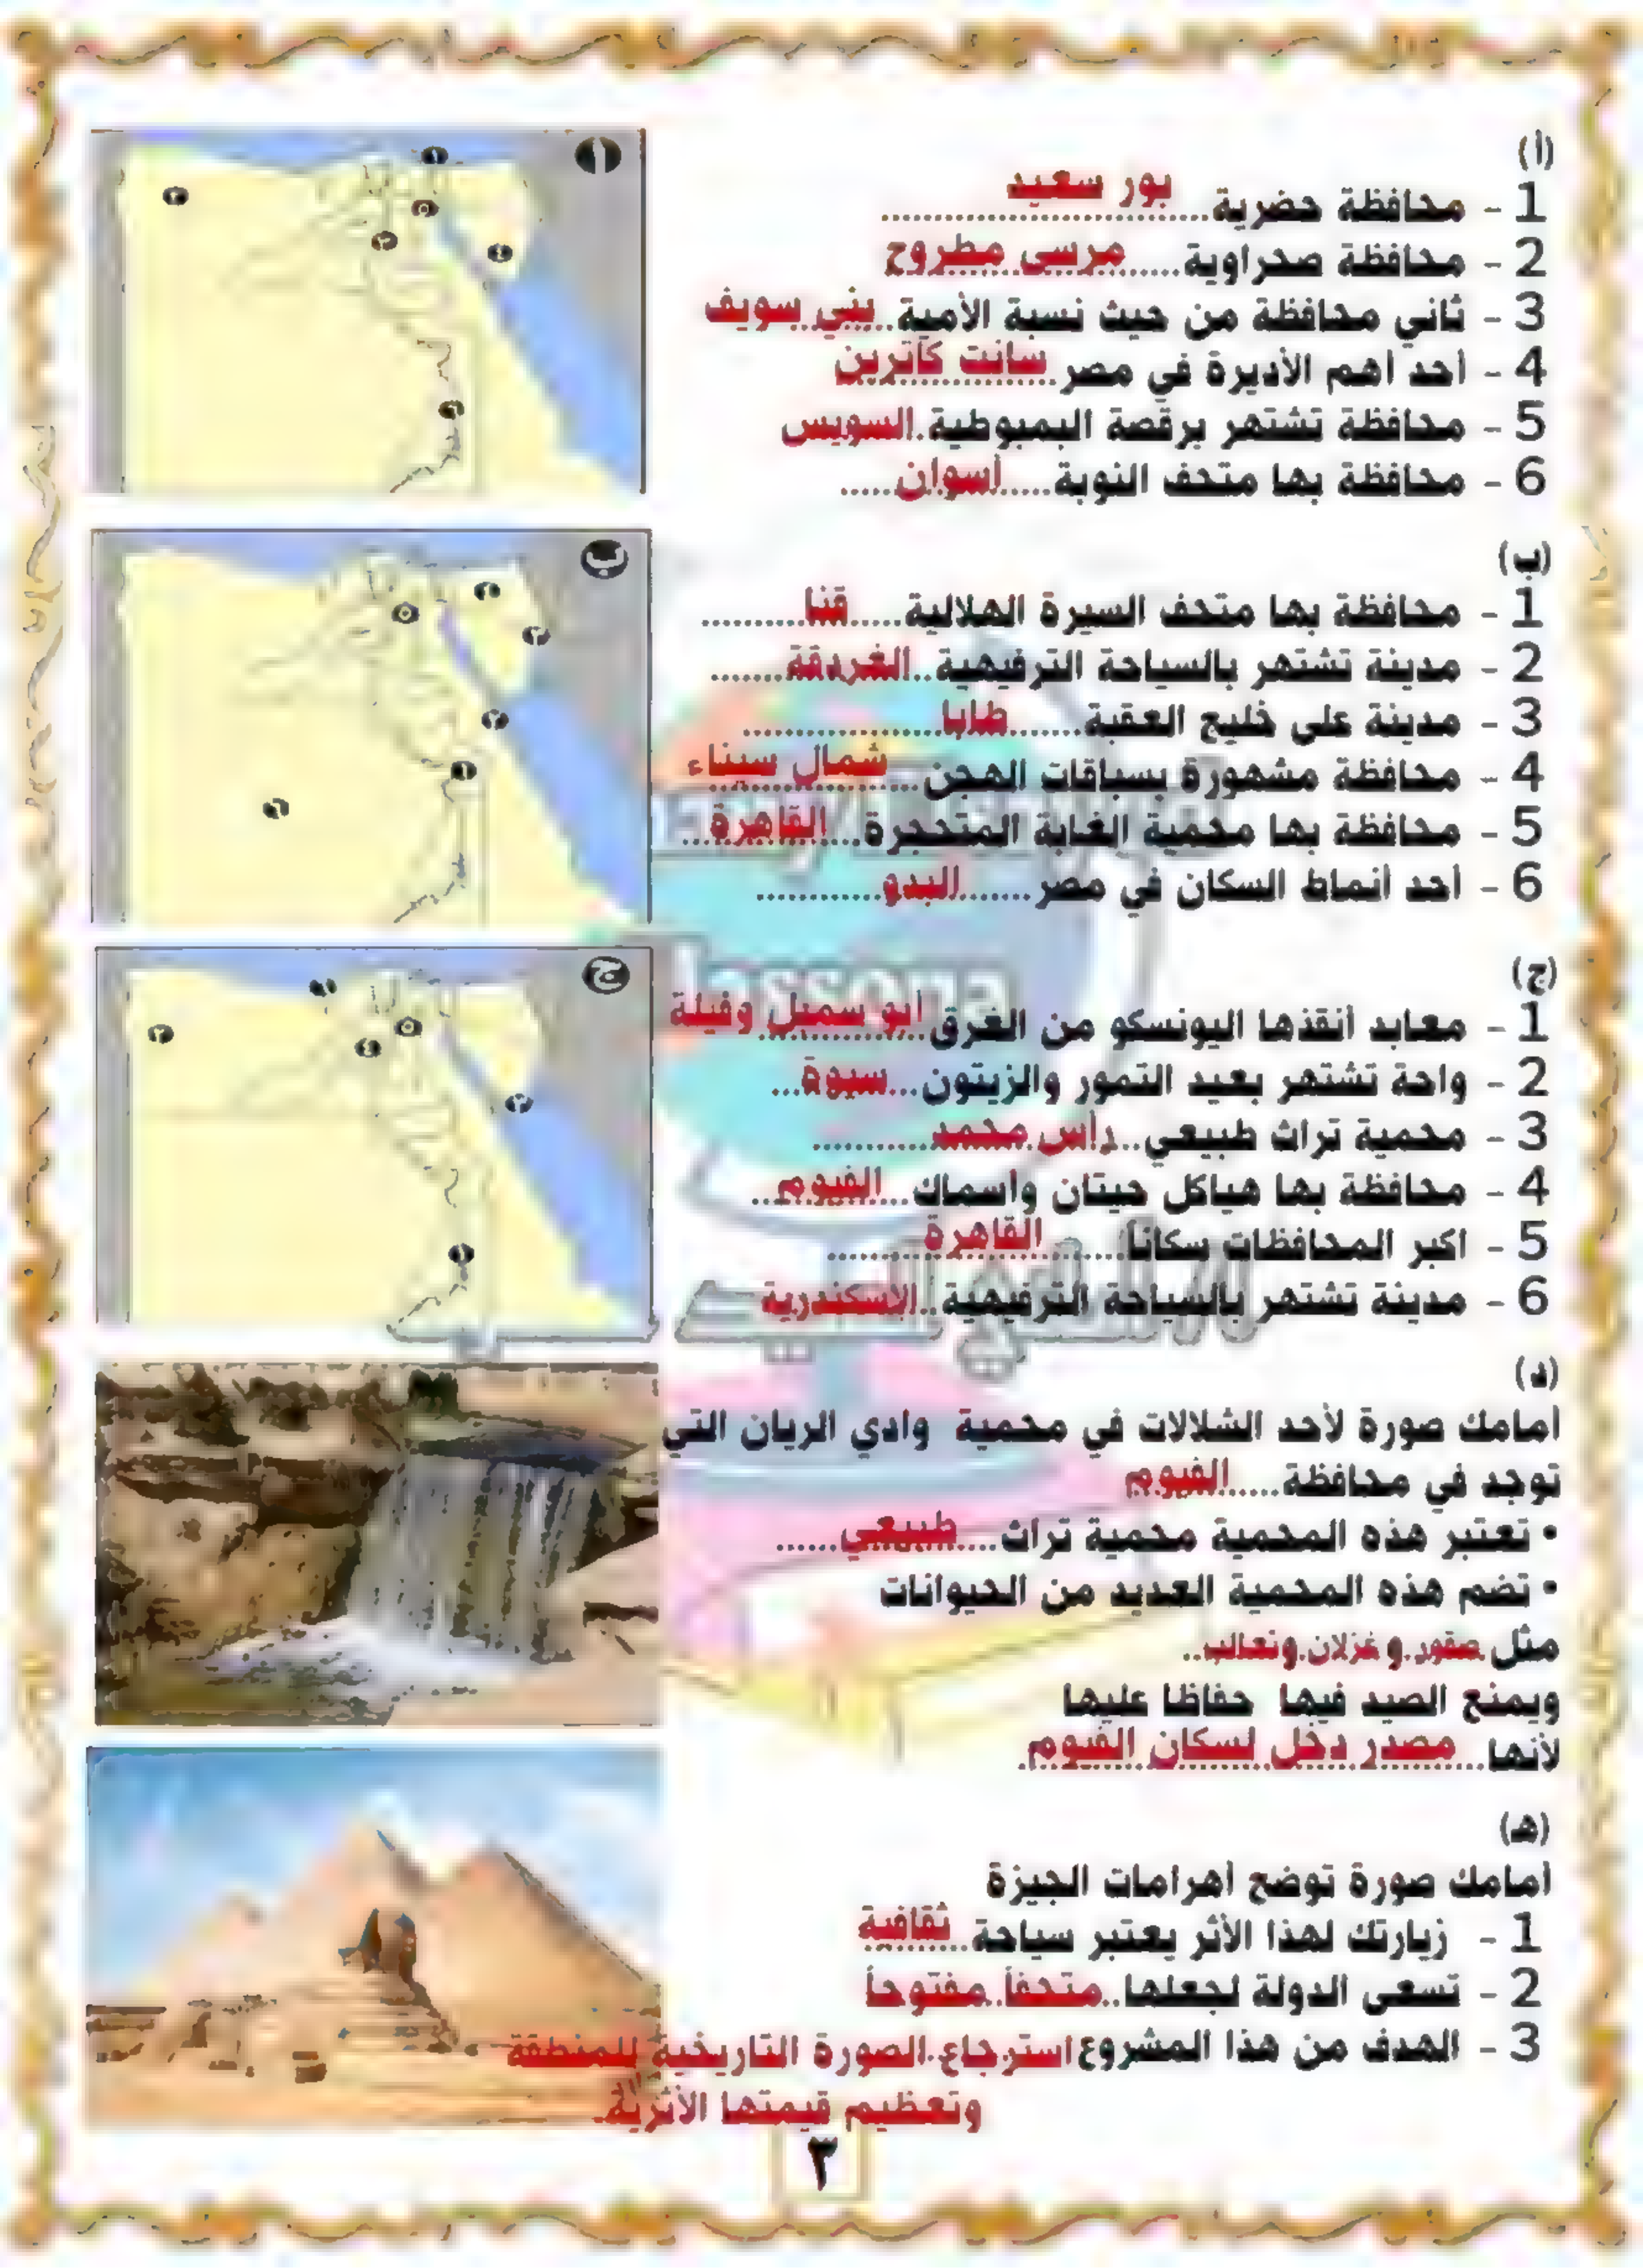 (أ)
1 - محافظة حضرية.......بور سعيد.......
2 - محافظة صحراوية.....مرسى مطروح
3 - ثاني محافظة من حيث نسبة الأمية..بني سويف
4 - أحد أهم الأديرة في مصر..سانت كاترين
5 - محافظة تشتهر برقصة البمبوطية.السويس
6 - محافظة بها متحف النوبة.....أسوان.....
(ب)
1 - محافظة بها متحف السيرة الهلالية.....قنا..........
2 - مدينة تشتهر بالسياحة الترفيهية..الغردقة.......
3 - مدينة على خليج العقبة.......طابا...................
4 - محافظة مشهورة بسباقات الهجن...شمال سيناء
5 - محافظة بها محمية الغابة المتحجرة...القاهرة...
6 - أحد أنماط السكان في مصر.......البدو............
(ج)
1 - معابد أنقذها اليونسكو من الغرق.أبو سمبل وفيلة
2 - واحة تشتهر بعيد التمور والزيتون...سيوة...
3 - محمية تراث طبيعي..رأس محمد............
4 - محافظة بها هياكل حيتان وأسماك...الفيوم..
5 - اكبر المحافظات سكانا........القاهرة.........
6 - مدينة تشتهر بالسياحة الترفيهية..الإسكندرية
(د)
أمامك صورة لأحد الشلالات في محمية وادي الريان التي
توجد في محافظة.....الفيوم
• تعتبر هذه المحمية محمية تراث....طبيعي......
• تضم هذه المحمية العديد من الحيوانات
مثل صقور و غزلان وثعالب..
ويمنع الصيد فيها حفاظا عليها
لأنها...مصدر دخل لسكان الفيوم.
(هـ)
أمامك صورة توضح أهرامات الجيزة
1 - زيارتك لهذا الأثر يعتبر سياحة..ثقافية
2 - تسعى الدولة لجعلها..متحفاً مفتوحاً
3 - الهدف من هذا المشروع استرجاع الصورة التاريخية للمنطقة
وتعظيم قيمتها الأثرية.
٣